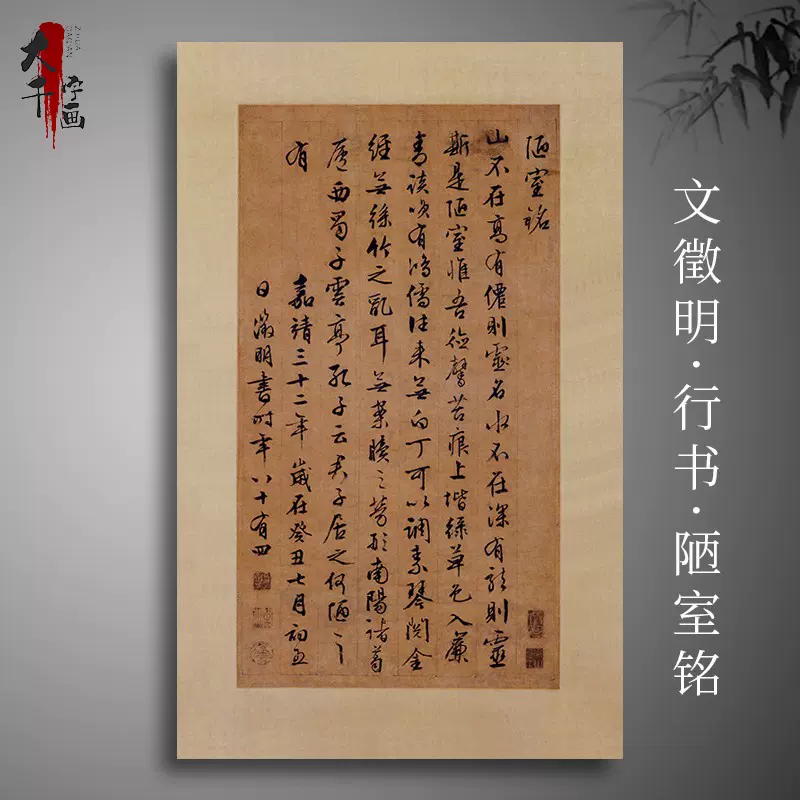 大千
字画
文徵明·行书·陋室铭
陋室銘
山不在高有僊則靈名水不在深有龍則靈
斯是陋室惟吾德馨苔痕上堦緑草色入簾
青談咲有鴻儒往來無白丁可以調素琴閱金
經無絲竹之亂耳無案牘之勞形南陽諸葛
廬西蜀子雲亭孔子云君子居之何陋之
有
嘉靖三十二年歲在癸丑七月初五
日徵明書時年八十有四